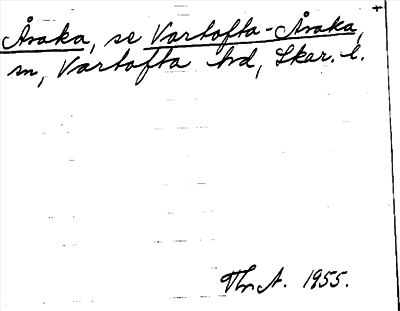 Åvaka, se Vartofta-Åvaka,
sn, Vartofta hd, Skar. l.
Thn A. 1955.